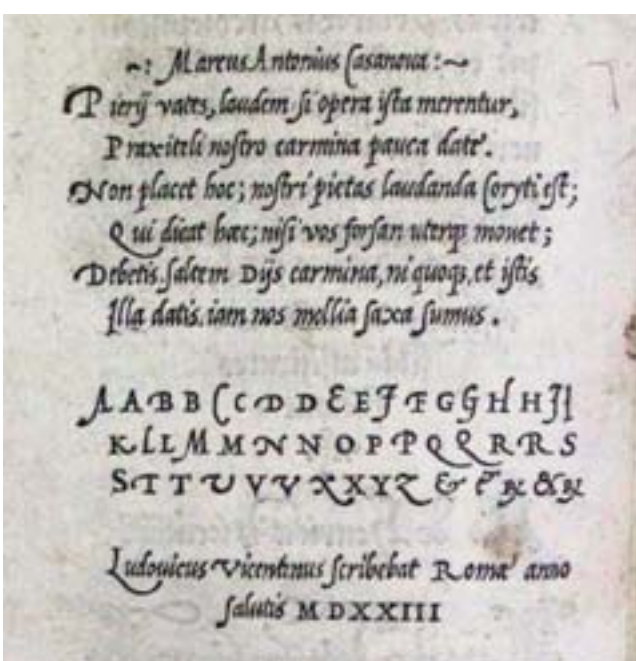 ~: Marcus Antonius Casanova :~
Pierij vates, laudem si opera ista merentur,
Praxiteli nostro carmina pauca date.
Non placet hoc; nostri pietas laudanda Coryti est;
Qui dicat hæc; nisi vos forsan uterqꝫ monet;
Debetis saltem Dijs carmina, ni quoqꝫ, et istis
Illa datis. iam nos mollia saxa sumus.
A A B B C C D D E E F F G G H H I I
K L L M M N N O P P Q Q R R S
S T T U V V X X Y Z & & ꝶ & ꝶ
Ludovicus Vicentinus scribebat Romæ anno
salutis M D X X I I I